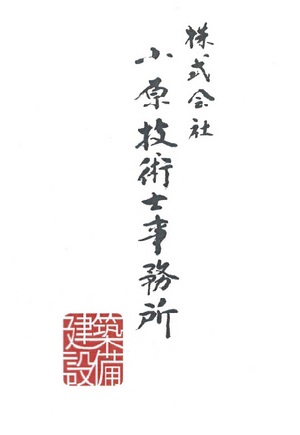 株式会社
小原技術士事務所
建築
設備